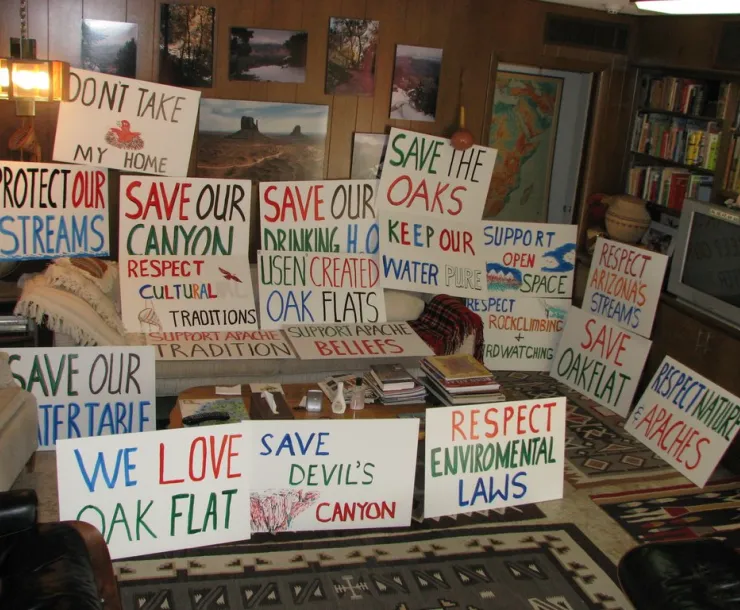 DON'T TAKE
MY HOME
PROTECT OUR
STREAMS
SAVE OUR
CANYON
RESPECT
CULTURAL
TRADITIONS
SAVE OUR
DRINKING H2O
USEN CREATED
OAK FLATS
SAVE THE
OAKS
KEEP OUR
WATER PURE
SUPPORT
OPEN
SPACE
RESPECT
ROCKCLIMBING
+
BIRDWATCHING
RESPECT
ARIZONA'S
STREAMS
SAVE
OAKFLAT
RESPECT NATURE
& APACHES
SUPPORT APACHE
TRADITION
SUPPORT APACHE
BELIEFS
SAVE OUR
WATER TABLE
WE LOVE
OAK FLAT
SAVE
DEVIL'S
CANYON
RESPECT
ENVIROMENTAL
LAWS